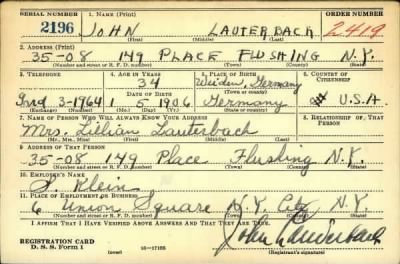 SERIAL NUMBER 1. NAME (Print) ORDER NUMBER
2196 JOHN LAUTERBACH 2419
(First) (Middle) (Last)
2. ADDRESS (Print)
35-08 149 PLACE FLUSHING N.Y.
(Number and street or R. F. D. number) (Town) (County) (State)
3. TELEPHONE 4. AGE IN YEARS 5. PLACE OF BIRTH 6. COUNTRY OF CITIZENSHIP
34 Weiden Germany
(Town or county)
DATE OF BIRTH
3-1964 1 5 1906 Germany U.S.A.
(Exchange) (Number) (Mo.) (Day) (Yr.) (State or country)
7. NAME OF PERSON WHO WILL ALWAYS KNOW YOUR ADDRESS 8. RELATIONSHIP OF THAT PERSON
Mrs. Lillian Lauterbach
(Mr., Mrs., Miss) (First) (Middle) (Last)
9. ADDRESS OF THAT PERSON
35-08 149 Place Flushing N.Y.
(Number and street or R. F. D. number) (Town) (County) (State)
10. EMPLOYER'S NAME
S. Klein
11. PLACE OF EMPLOYMENT OR BUSINESS
6 Union Square N.Y. City N.Y.
(Number and street or R. F. D. number) (Town) (County) (State)
I AFFIRM THAT I HAVE VERIFIED ABOVE ANSWERS AND THAT THEY ARE TRUE.
REGISTRATION CARD
D. S. S. Form 1 (over) 16-17105 John Lauterbach